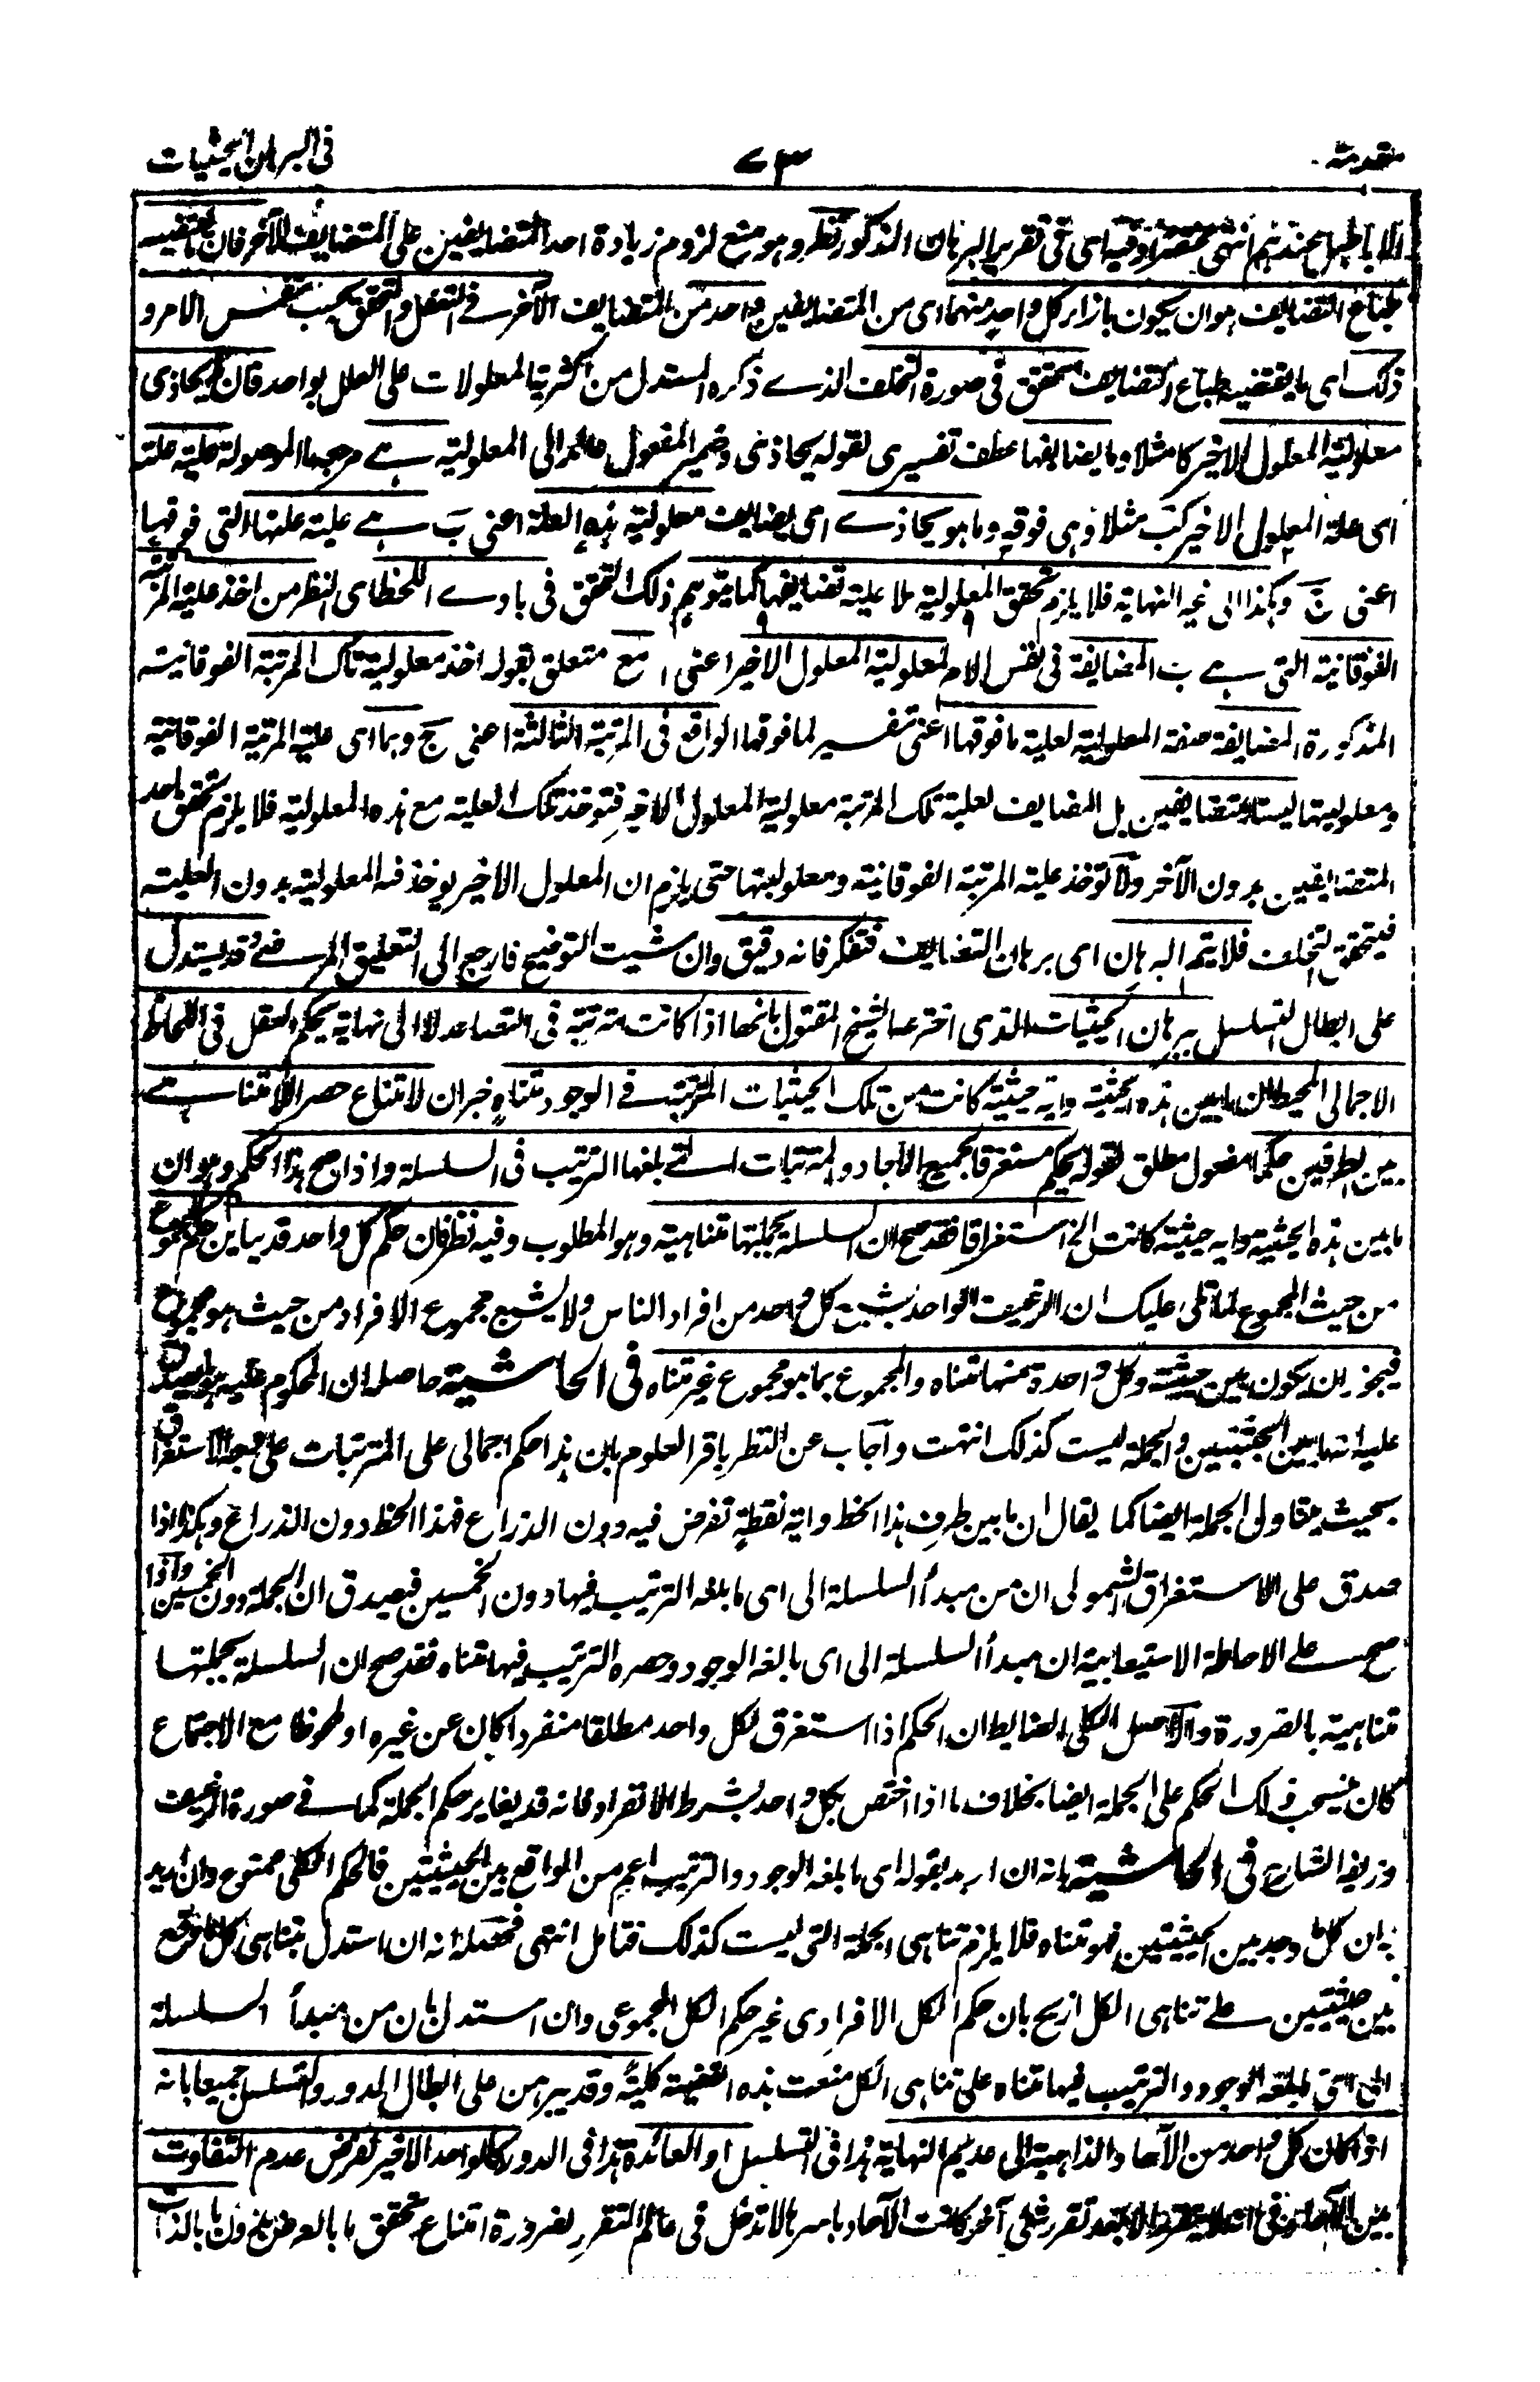 مقدمة
٧٣
فى البرهان الحيثيات
انتهى مختصرا وفيه اى فى تقرير البرهان المذكور نظر وهو منع لزوم زيادة احد المتضايفين على المتضايف الآخر فان ما يقتضيه
طباع التضايف هو ان يكون بازاء كل واحد منهما اى من المتضايفين واحد من المتضايف الآخر فے التعقل والتحقق بحسب نفس الامر و
ذلك اى ما يقتضيه طباع التضايف متحقق فى صورة التخلف الذے ذكره المستدل من اكثرية المعلولات على العلل بواحد فان ما يحاذى
معلولية المعلول الاخير كا مثلا وما يضايفها عطف تفسيرى لقوله يحاذى وضمير المفعول عائد الى المعلولية ہے مرجعها الموصولة علية علته
اى علة المعلول الاخير كب مثلا وهى فوقيه وما هو يحاذے اى يضايف معلولية هذه العلة اعنى ب ہے علية علتها التى فوقها
اعنى ج وهكذا الى غير النهاية فلا يلزم تحقق المعلولية بلا علية تضايفها كما يتوهم ذلك التحقق فى بادے اللحظ اى النظر من اخذ علية المرتبة
الفوقانية التى ہے ب المضايفة فى نفس الامر لمعلولية المعلول الاخير اعنى ا مع متعلق بقوله اخذ معلولية تلك المرتبة الفوقانية
المذكورة المضايفة صفة المعلولية لعلية ما فوقها اعنى تفسير لما فوقها الواقع فى المرتبة الثالثة اعنى ج وهما اى علية المرتبة الفوقانية
ومعلوليتها ليستا بمتضايفين بل المضايف لعلية تلك المرتبة معلولية المعلول الاخير فتوخذ تلك العلية مع هذه المعلولية فلا يلزم تحقق احد
المتضايفين بدون الآخر ولا توخذ علية المرتبة الفوقانية ومعلوليتها حتى يلزم ان المعلول الاخير يوخذ فيه المعلولية بدون العلية
فيتحقق التخلف فلا يتم البرهان اى برهان التضايف فتفكر فانه دقيق وان شيت التوضيح فارجع الى التعليق المرضے وقد يستدل
على ابطال التسلسل ببرهان الحيثيات الذى اخترعه الشيخ المقتول بانها اذا كانت مترتبة فى التصاعد لا الى نهاية يحكم العقل فى اللحاظ
الاجمالى المحيط ان ما بين هذه الحيثية واية حيثية كانت من تلك الحيثيات المترتبة فے الوجود متناه خبر ان لامتناع حصر اللاتناہے
بين الطرفين حكما مفعول مطلق لقوله يحكم مستغرقا لجميع الآحاد والمترتبات التے بلغها الترتيب فى السلسلة واذا صح هذا الحكم وهو ان
ما بين هذه الحيثية واية حيثية كانت الخ استغراقا فقد صح ان السلسلة بجملتها متناهية وهو المطلوب وفيه نظر فان حكم كل واحد قد يباين حكم المجموع
من حيث المجموع لما تلى عليك ان الرغيف الواحد يشبع كل واحد من افراد الناس ولا يشبع مجموع الافراد من حيث هو مجموع
فيجوز ان يكون بين حيثية وكل واحدة منها متناه والمجموع بما هو مجموع غير متناه فى الحاشية حاصله ان المحكوم عليه ما يصدق
عليه انها بين الحيثيتين والجملة ليست كذلك انتهت واجاب عن النظر باقر العلوم بان هذا حكم اجمالى على المترتبات على الاستغراق
بحيث يتناول الجملة ايضا كما يقال ان ما بين طرف هذا الخط واية نقطة تفرض فيه دون الذراع فهذا الخط دون الذراع وهكذا اذا
صدق على الاستغراق الشمولى ان من مبدأ السلسلة الى اى ما بلغه الترتيب فيها دون الخمسين فيصدق ان الجملة دون الخمسين واذا
صح على الاحاطة الاستيعابية ان مبدأ السلسلة الى اى ما بلغه الوجود وحصره الترتيب فيها متناه فقد صح ان السلسلة بجملتها
متناهية بالضرورة والاصل الكلى الضابط ان الحكم اذا استغرق لكل واحد مطلقا منفردا كان عن غيره او ملحوظا مع الاجتماع
كان ينسحب ذلك الحكم على الجملة ايضا بخلاف ما اذا اختص بكل واحد بشرط الانفراد فانه قد يغاير حكم الجملة كما فے صورة الرغيف
وزيفه الشارح فى الحاشية بانه ان اريد بقوله اى ما بلغه الوجود والترتيب اعم من الواقع بين الحيثيتين فالحكم الكلى ممنوع وان اريد
به ان كل ما وجد بين الحيثيتين فهو متناه فلا يلزم تناهى الجملة التى ليست كذلك فتامل انتهى فمحصله انه ان استدل بتناهى كل ما وقع
بين حيثيتين علے تناهى الكل ازيح بان حكم الكل الافرادى غير حكم الكل المجموعى وان استدل بان من مبدأ السلسلة
الى اى ما بلغه الوجود والترتيب فيها متناه على تناهى الكل منعت هذه القضية كلية وقد يبرهن على ابطال الدور والتسلسل جميعا بانه
اذا كان كل واحد من الآحاد الذاهبة الى عديم النهاية هذا فى التسلسل او العائدة هذا فى الدور كالواحد الاخير لفرض عدم التفاوت
بين الآحاد فى تقرر شئ آخر كانت الآحاد باسرها لا تدخل فى عالم التقرر لضرورة امتناع تحقق ما بالعرض بدون ما بالذات